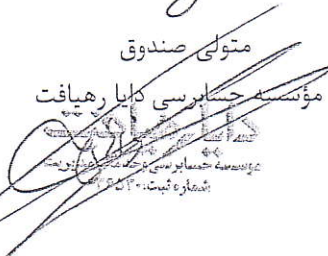 متولی صندوق
مؤسسه حسابرسی دایا رهیافت
دایا رهیافت
موسسه حسابرسی و خدمات مدیریت
شماره ثبت: